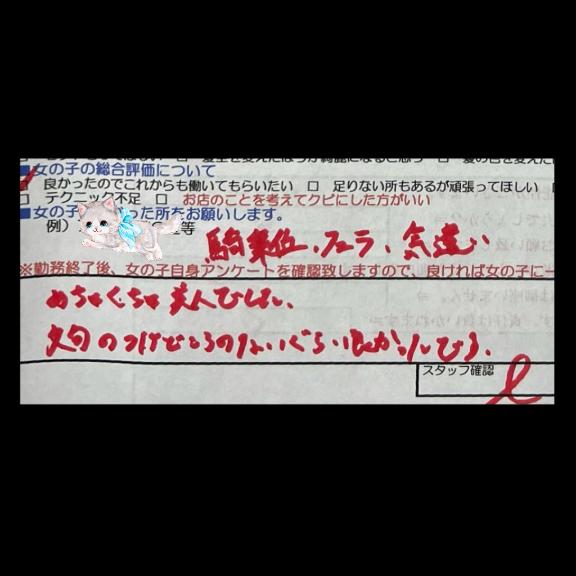 ■女の子の総合評価について
良かったのでこれからも働いてもらいたい □ 足りない所もあるが頑張ってほしい □
□ テクニック不足 □ お店のことを考えてクビにした方がいい
■女の子 った所をお願いします。
例） 等
騎乗位、フェラ、気遣い
※勤務終了後、女の子自身アンケートを確認致しますので、良ければ女の子に一
めちゃくちゃ美人でした。
文句のつけどころのないぐらい良かったです。
スタッフ確認